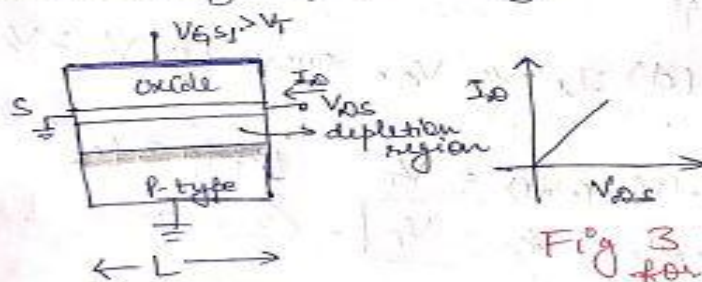 VGS1 > VT
oxide
ID
S
VDS
depletion
region
P-type
L
ID
VDS
Fig 3
for